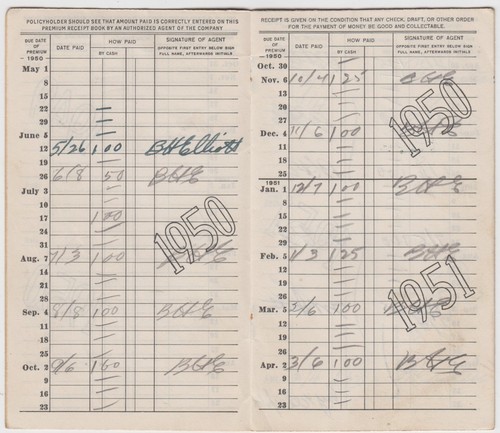 POLICYHOLDER SHOULD SEE THAT AMOUNT PAID IS CORRECTLY ENTERED ON THIS
PREMIUM RECEIPT BOOK BY AN AUTHORIZED AGENT OF THE COMPANY
DUE DATE OF PREMIUM —1950— DATE PAID HOW PAID BY CASH SIGNATURE OF AGENT OPPOSITE FIRST ENTRY BELOW SIGN FULL NAME, AFTERWARDS INITIALS
May 1
8
15
22
29
June 5
12 5/26 1 00 BHElliott
19
26 6/8 50 BHE
July 3
10
17 1 00
24
31 1950
Aug. 7 7/3 1 00 BHE
14
21
28
Sep. 4 8/8 1 00 BHE
11
18
25
Oct. 2 9/6 1 00 BHE
9
16
23
RECEIPT IS GIVEN ON THE CONDITION THAT ANY CHECK, DRAFT, OR OTHER ORDER
FOR THE PAYMENT OF MONEY BE GOOD AND COLLECTABLE.
DUE DATE OF PREMIUM —1950 DATE PAID HOW PAID BY CASH SIGNATURE OF AGENT OPPOSITE FIRST ENTRY BELOW SIGN FULL NAME, AFTERWARDS INITIALS
Oct. 30
Nov. 6 10/4 1 25 BHE
13
20
27 1950
Dec. 4 11/6 1 00 BHE
11
18
25
1951
Jan. 1 12/7 1 00 BHE
8
15
22
29
Feb. 5 1/3 1 25 BHE
12
19
26 1951
Mar. 5 2/6 1 00 BHE
12
19
26
Apr. 2 3/6 1 00 BHE
9
16
23